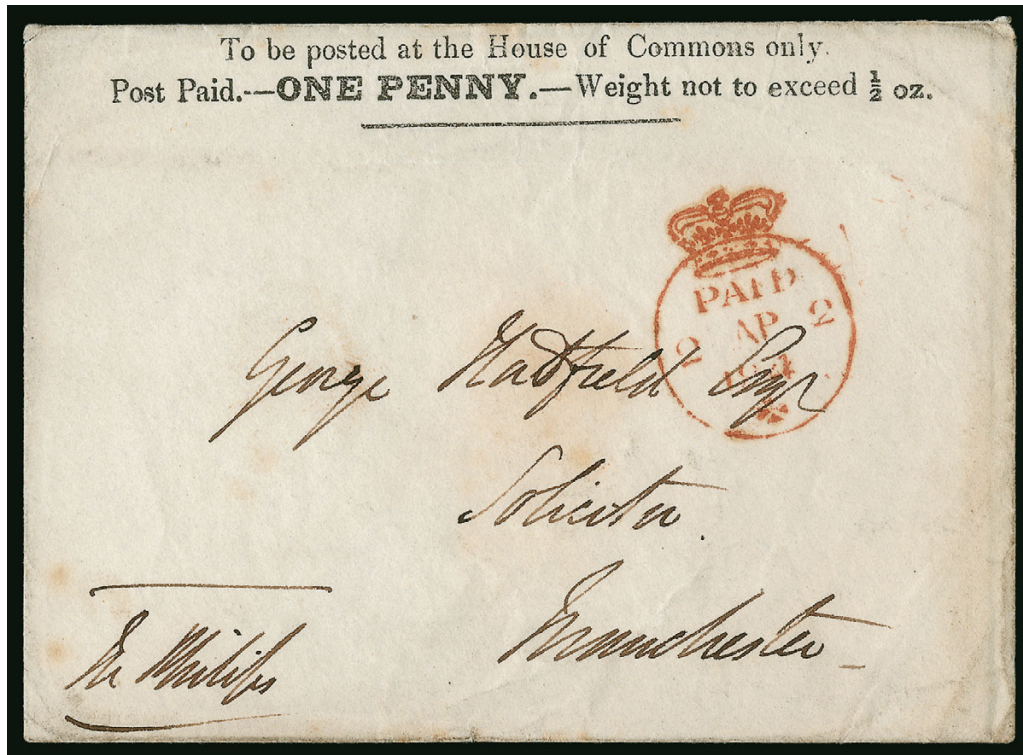 To be posted at the House of Commons only.
Post Paid.--ONE PENNY.—Weight not to exceed ½ oz.
PAID
2 AP 2
George Hadfield Esqr
Solicitor
Manchester
Mr Philips